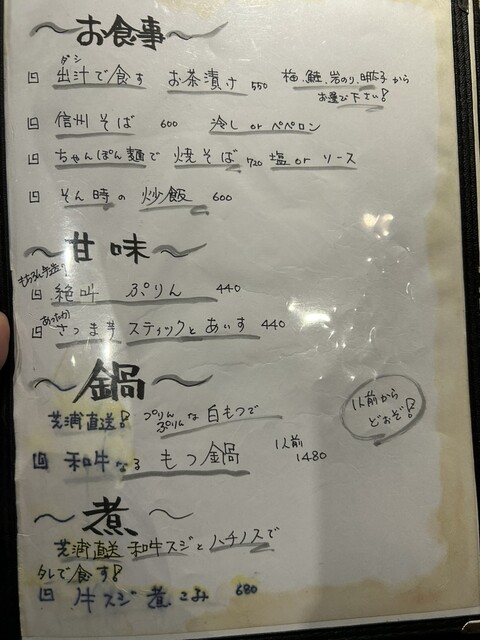 〜お食事〜
ダシ
出汁で食す お茶漬け 550 梅、鮭、岩のり、明太子から
お選び下さい!
信州そば 600 冷し or ペペロン
ちゃんぽん麺で 焼そば 720 塩 or ソース
そん時の 炒飯 600
〜甘味〜
もちろん手造り
絶叫 ぷりん 440
あったか
さつま芋スティックとあいす 440
〜鍋〜
1人前から
どおぞ!
芝浦直送! ぷりんぷりんな白もつで
和牛なる もつ鍋 1人前 1480
〜煮〜
芝浦直送 和牛スジとハチノスで
タレで食す!
牛スジ煮こみ 680